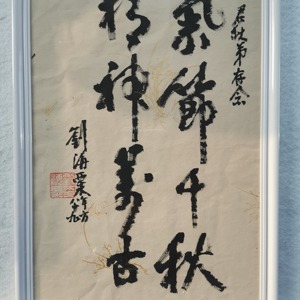 君秋弟存念
氣節千秋
精神萬古
劉海粟年方八九